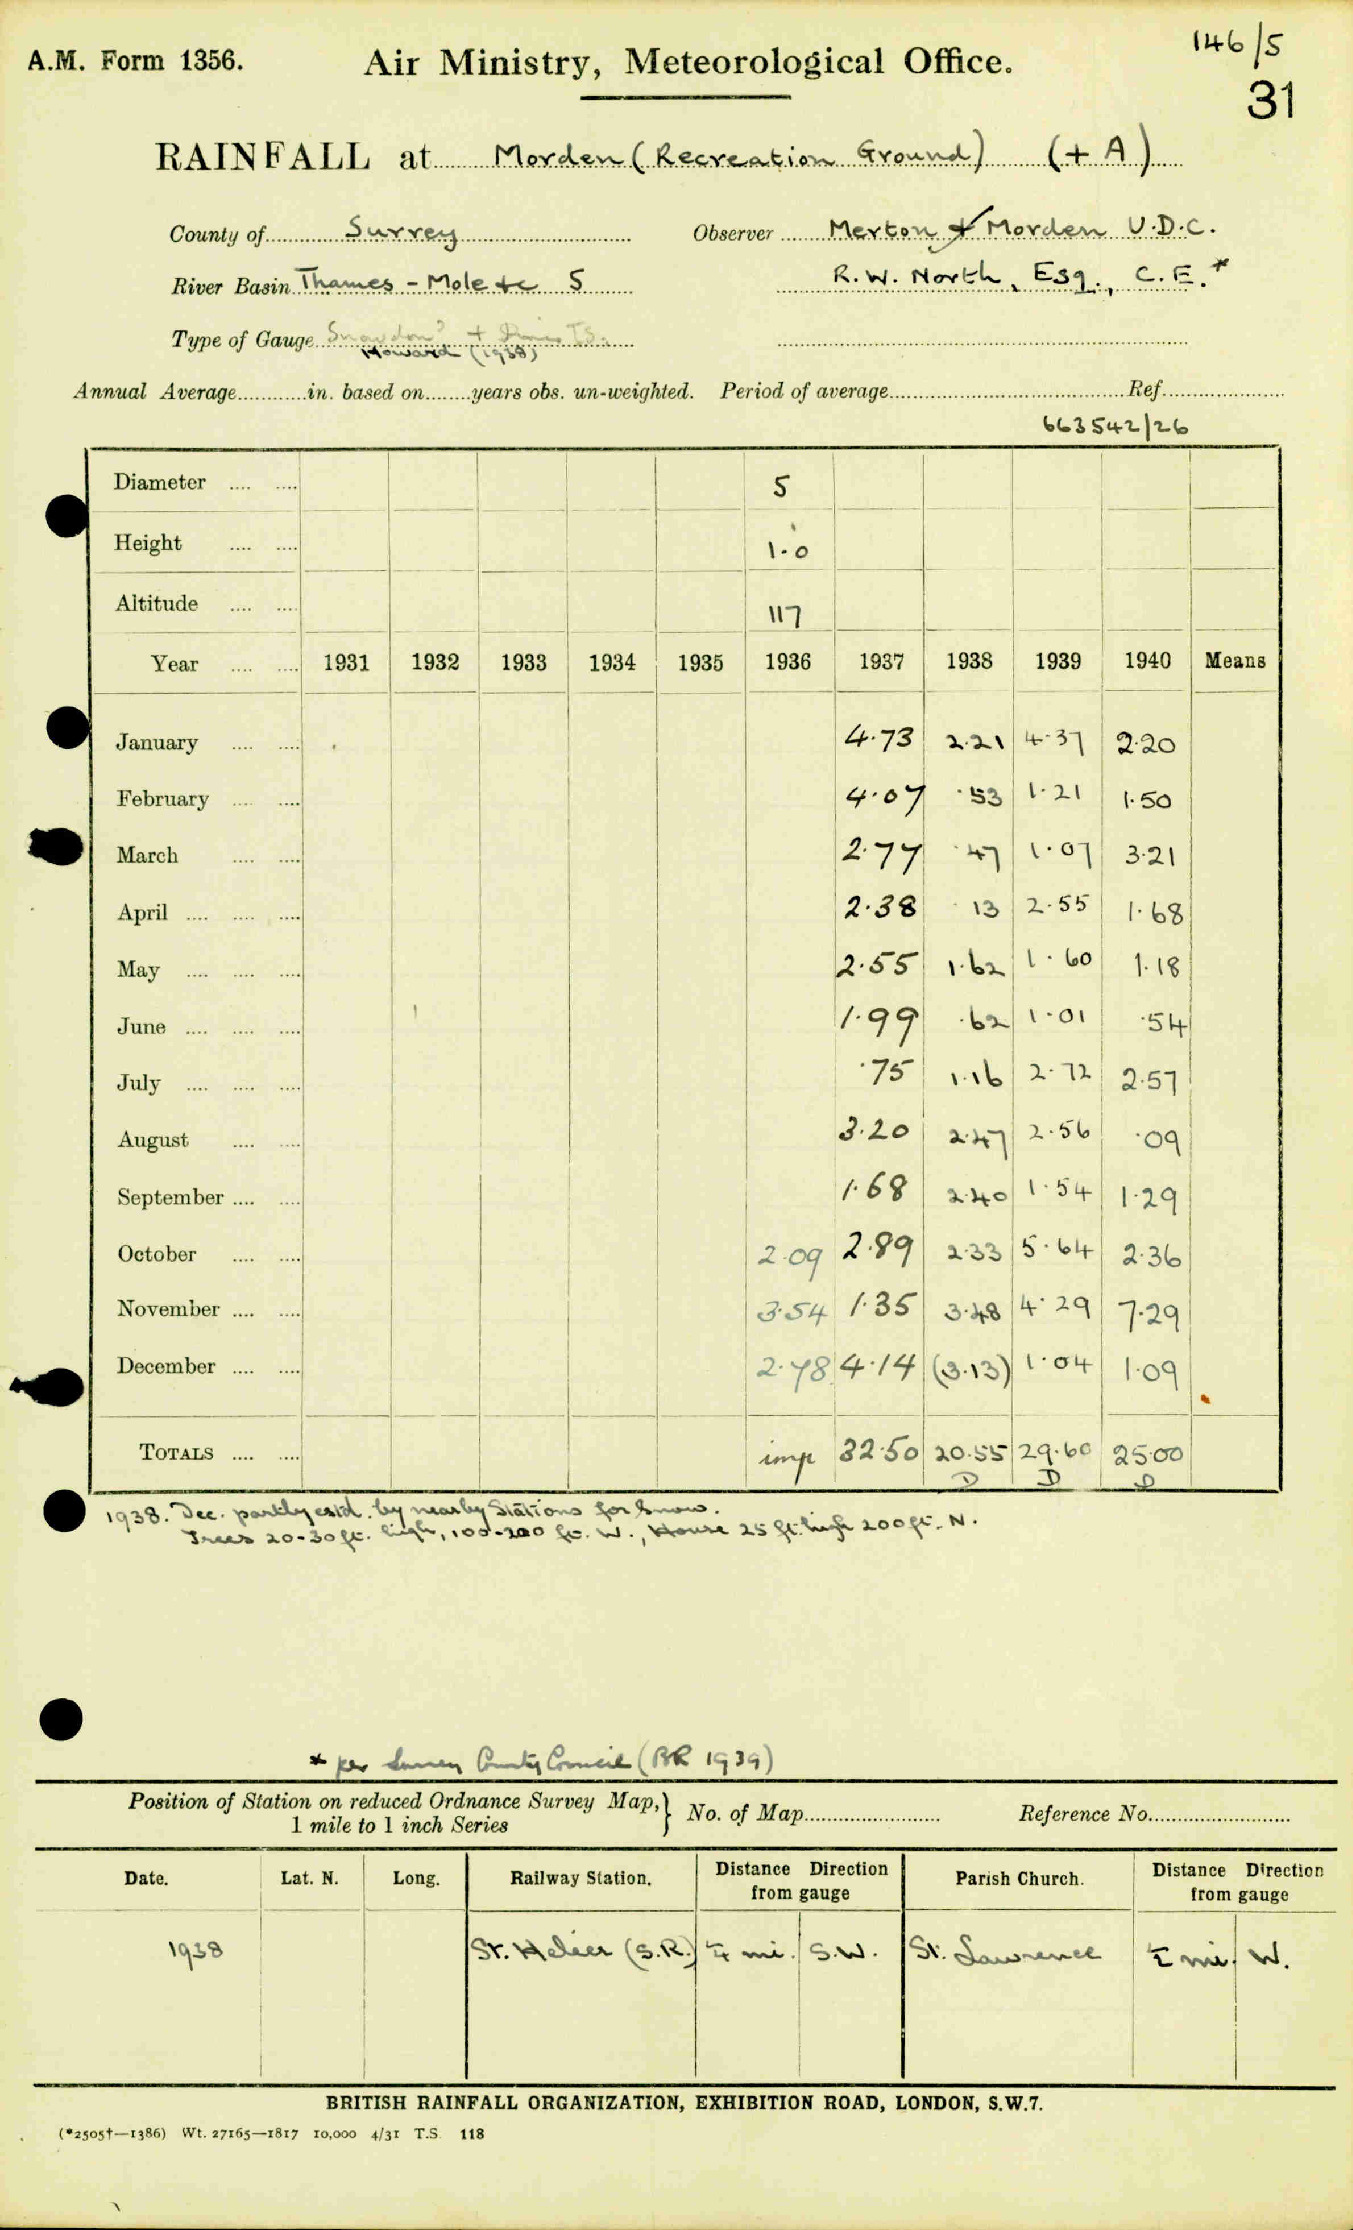 146/5
A.M. Form 1356. Air Ministry, Meteorological Office.
31
RAINFALL at Morden (Recreation Ground) (+ A)
County of Surrey Observer Merton & Morden U.D.C.
River Basin Thames - Mole &c 5 R.W. North, Esq., C.E.*
Type of Gauge Snowdon
Howard (1938)
Annual Average in. based on years obs. un-weighted. Period of average Ref.
663542/26
Diameter .... .... 5
Height .... .... 1.0
Altitude .... .... 117
Year .... .... 1931 1932 1933 1934 1935 1936 1937 1938 1939 1940 Means
January .... .... 4.73 2.21 4.37 2.20
February .... .... 4.07 .53 1.21 1.50
March .... .... 2.77 .47 1.07 3.21
April .... .... .... 2.38 .13 2.55 1.68
May .... .... .... 2.55 1.62 1.60 1.18
June .... .... .... 1.99 .62 1.01 .54
July .... .... .... .75 1.16 2.72 2.57
August .... .... 3.20 2.47 2.56 .09
September .... .... 1.68 2.40 1.54 1.29
October .... .... 2.09 2.89 2.33 5.64 2.36
November .... .... 3.54 1.35 3.48 4.29 7.29
December .... .... 2.78 4.14 (3.13) 1.04 1.09
TOTALS .... .... imp 32.50 20.55 29.60 25.00
D D D
1938. Dec. partly estd. by nearby Stations for snow.
Trees 20-30 ft. high, 100-200 ft. W., House 25 ft. high 200 ft. N.
* per Surrey County Council (BR 1939)
Position of Station on reduced Ordnance Survey Map,} No. of Map Reference No.
1 mile to 1 inch Series
Date. Lat. N. Long. Railway Station. Distance Direction from gauge Parish Church. Distance Direction from gauge
1938 St. Helier (S.R.) ¼ mi. S.W. St. Lawrence ½ mi. W.
BRITISH RAINFALL ORGANIZATION, EXHIBITION ROAD, LONDON, S.W.7.
(*2505†—1386) Wt. 27165—1817 10,000 4/31 T.S. 118